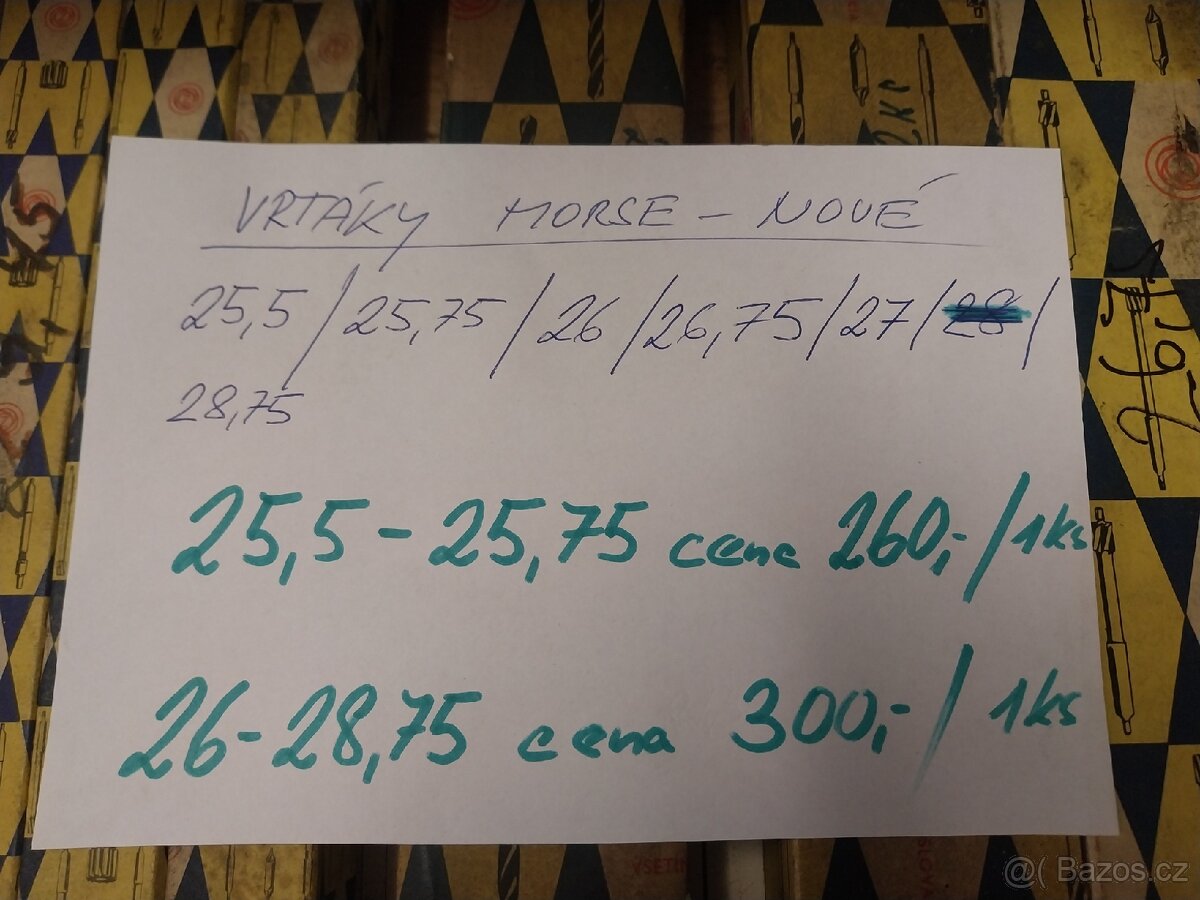 VRTÁKY MORSE – NOVÉ
25,5 / 25,75 / 26 / 26,75 / 27 / 28 /
28,75
25,5 - 25,75 cena 260,- / 1ks
26 - 28,75 cena 300,- / 1ks
2KS
26,75
VSETÍN
@( Bazos.cz